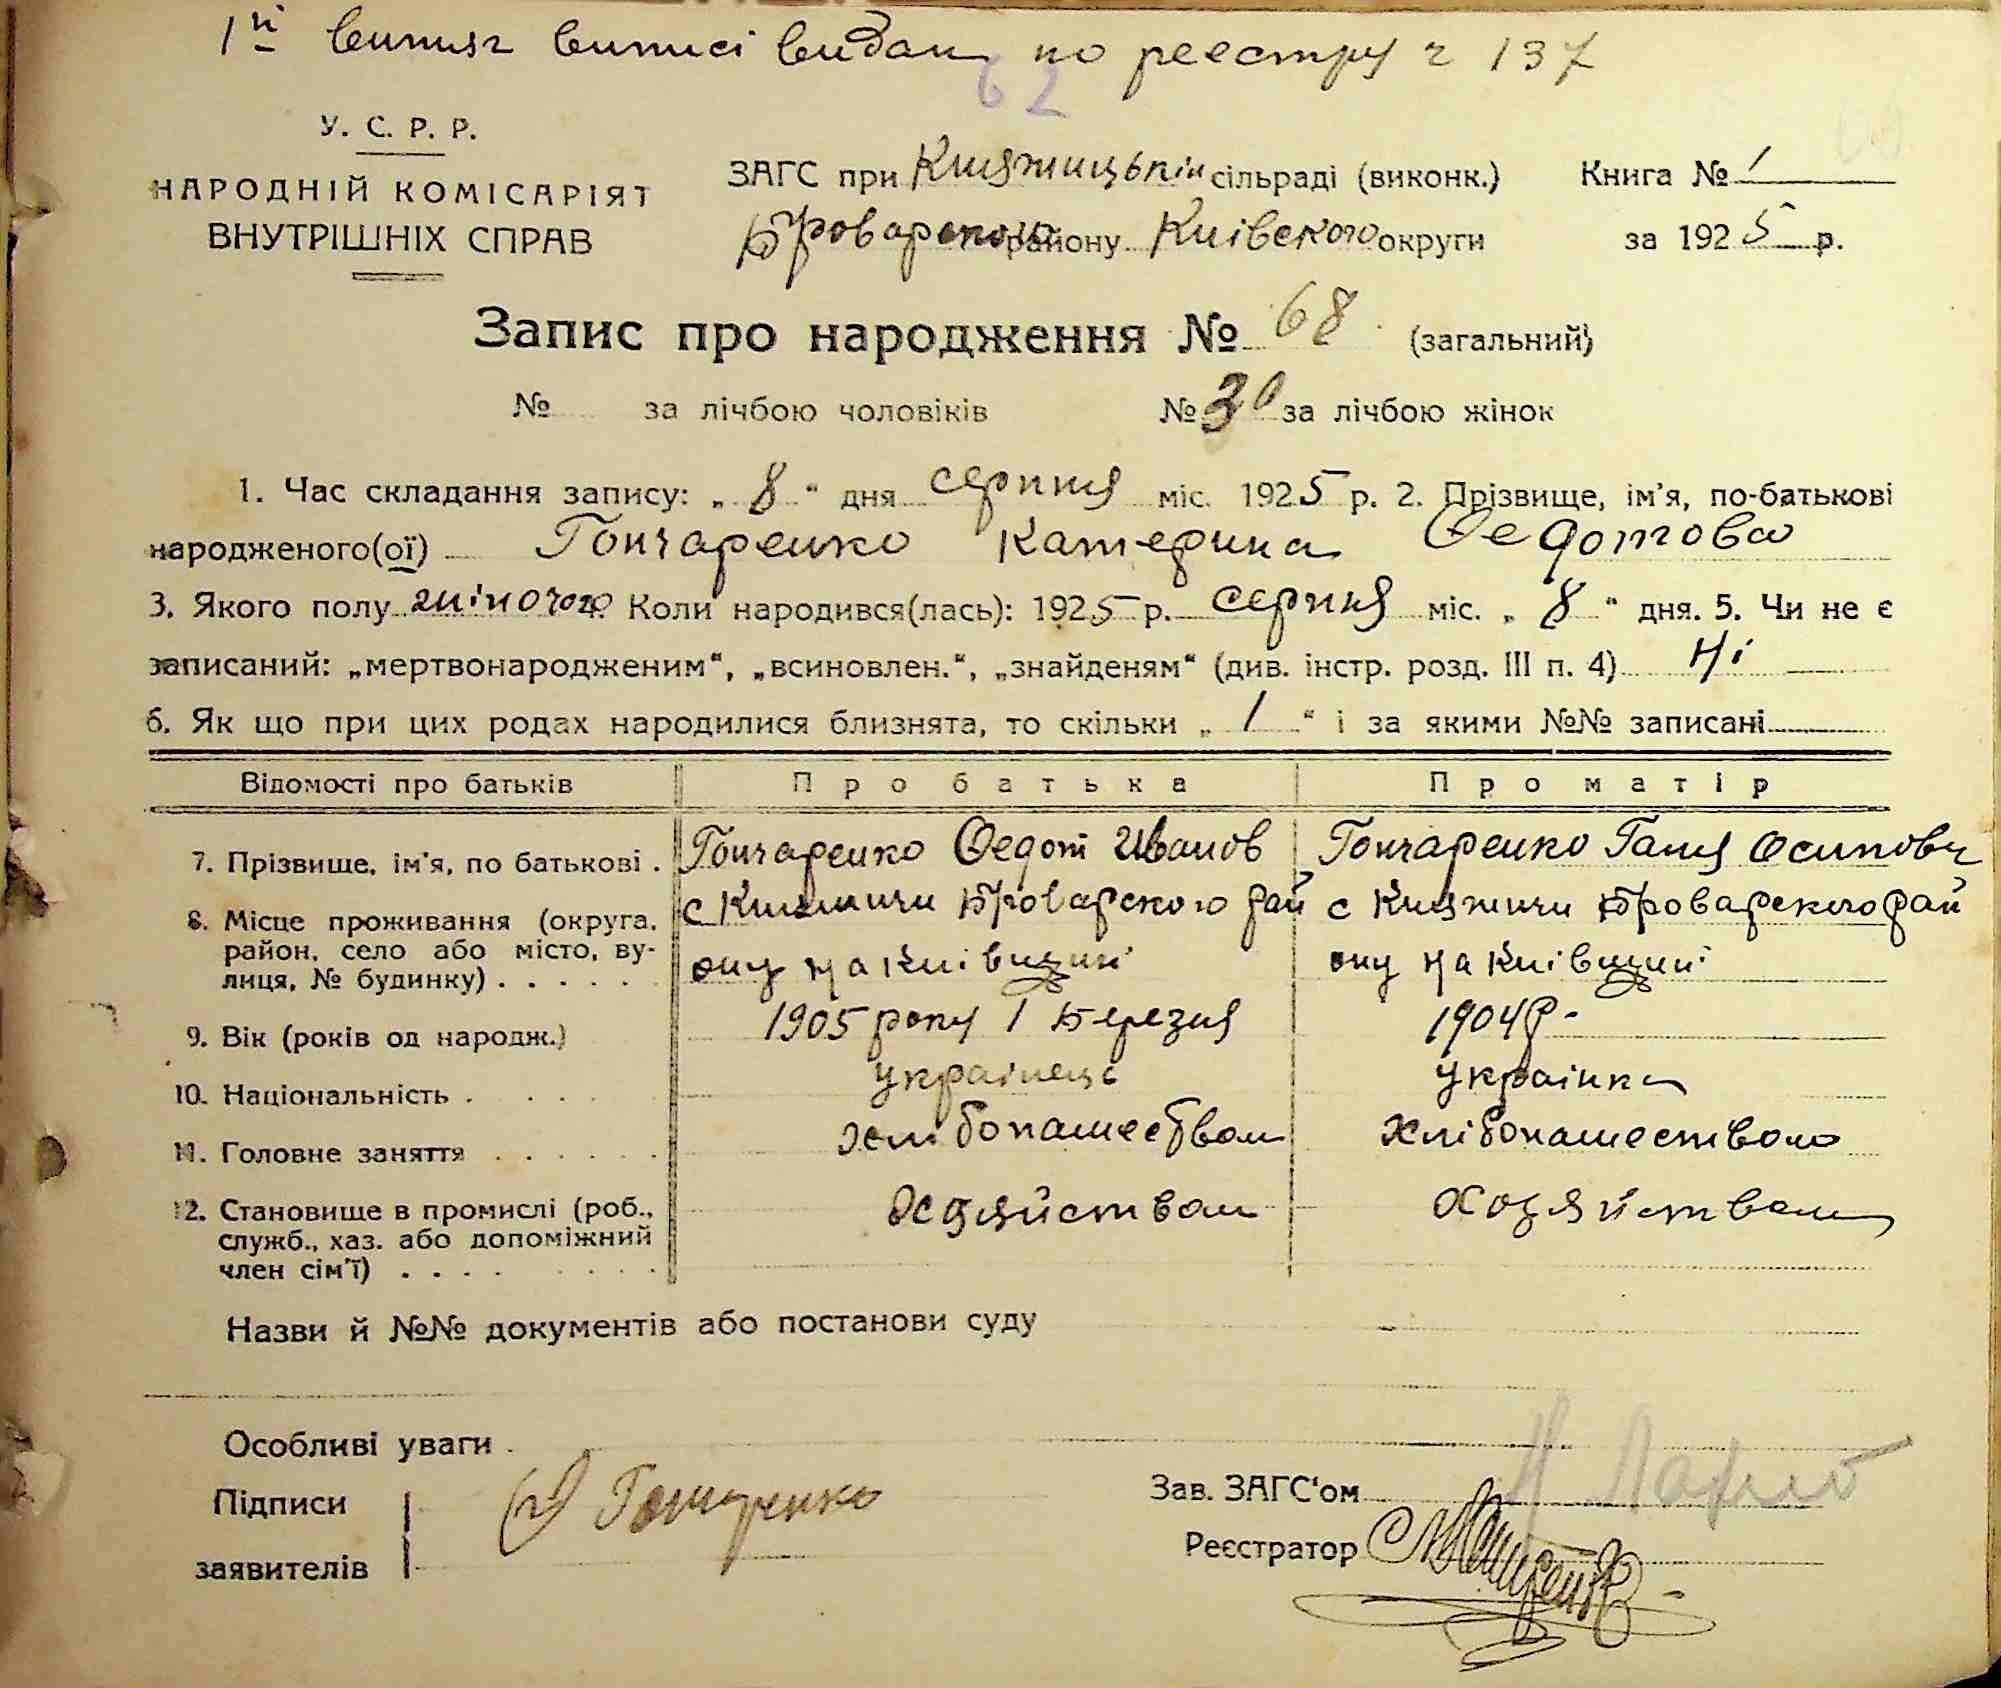 1й випис виписі видан по реестру г 137
62
У. С. Р. Р.
НАРОДНІЙ КОМІСАРІЯТ
ВНУТРІШНІХ СПРАВ
ЗАГС при Княжицькій сільраді (виконк.)
Броварского району Киівского округи
Книга № 1
за 1925 р.
Запис про народження № 68 (загальний)
№ за лічбою чоловіків № 30 за лічбою жінок
1. Час складання запису: „ 8 “ дня серпня міс. 1925 р. 2. Прізвище, ім'я, по-батькові
народженого(ої) Гончаренко Катерина Федотова
3. Якого полу жіночого 4. Коли народився(лась): 1925 р. серпня міс. „ 8 “ дня. 5. Чи не є
записаний: „мертвонародженим“, „всиновлен.“, „знайденям“ (див. інстр. розд. III п. 4) Ні
6. Як що при цих родах народилися близнята, то скільки „ 1 “ і за якими №№ записані
Відомості про батьків Про батька Про матір
7. Прізвище, ім'я, по батькові . Гончаренко Федот Иванов Гончаренко Ганя Осипови
8. Місце проживання (округа, район, село або місто, вулиця, № будинку) . . . . .
с Княжичи Броварского рай
ону на Киівщині
с Княжичи Броварского рай
ону на Киівщині
9. Вік (років од народж.) 1905 року 1 Березня 1904 р.
10. Національність . украінець украінка
11. Головне заняття . . . . . . хлібопашеством хлібопашеством
12. Становище в промислі (роб.,
служб., хаз. або допоміжний
член сім'ї) . . . .
хозяйством хозяйством
Назви й №№ документів або постанови суду
Особливі уваги .
Підписи
заявителів
Гончаренко
Зав. ЗАГС'ом
Реєстратор